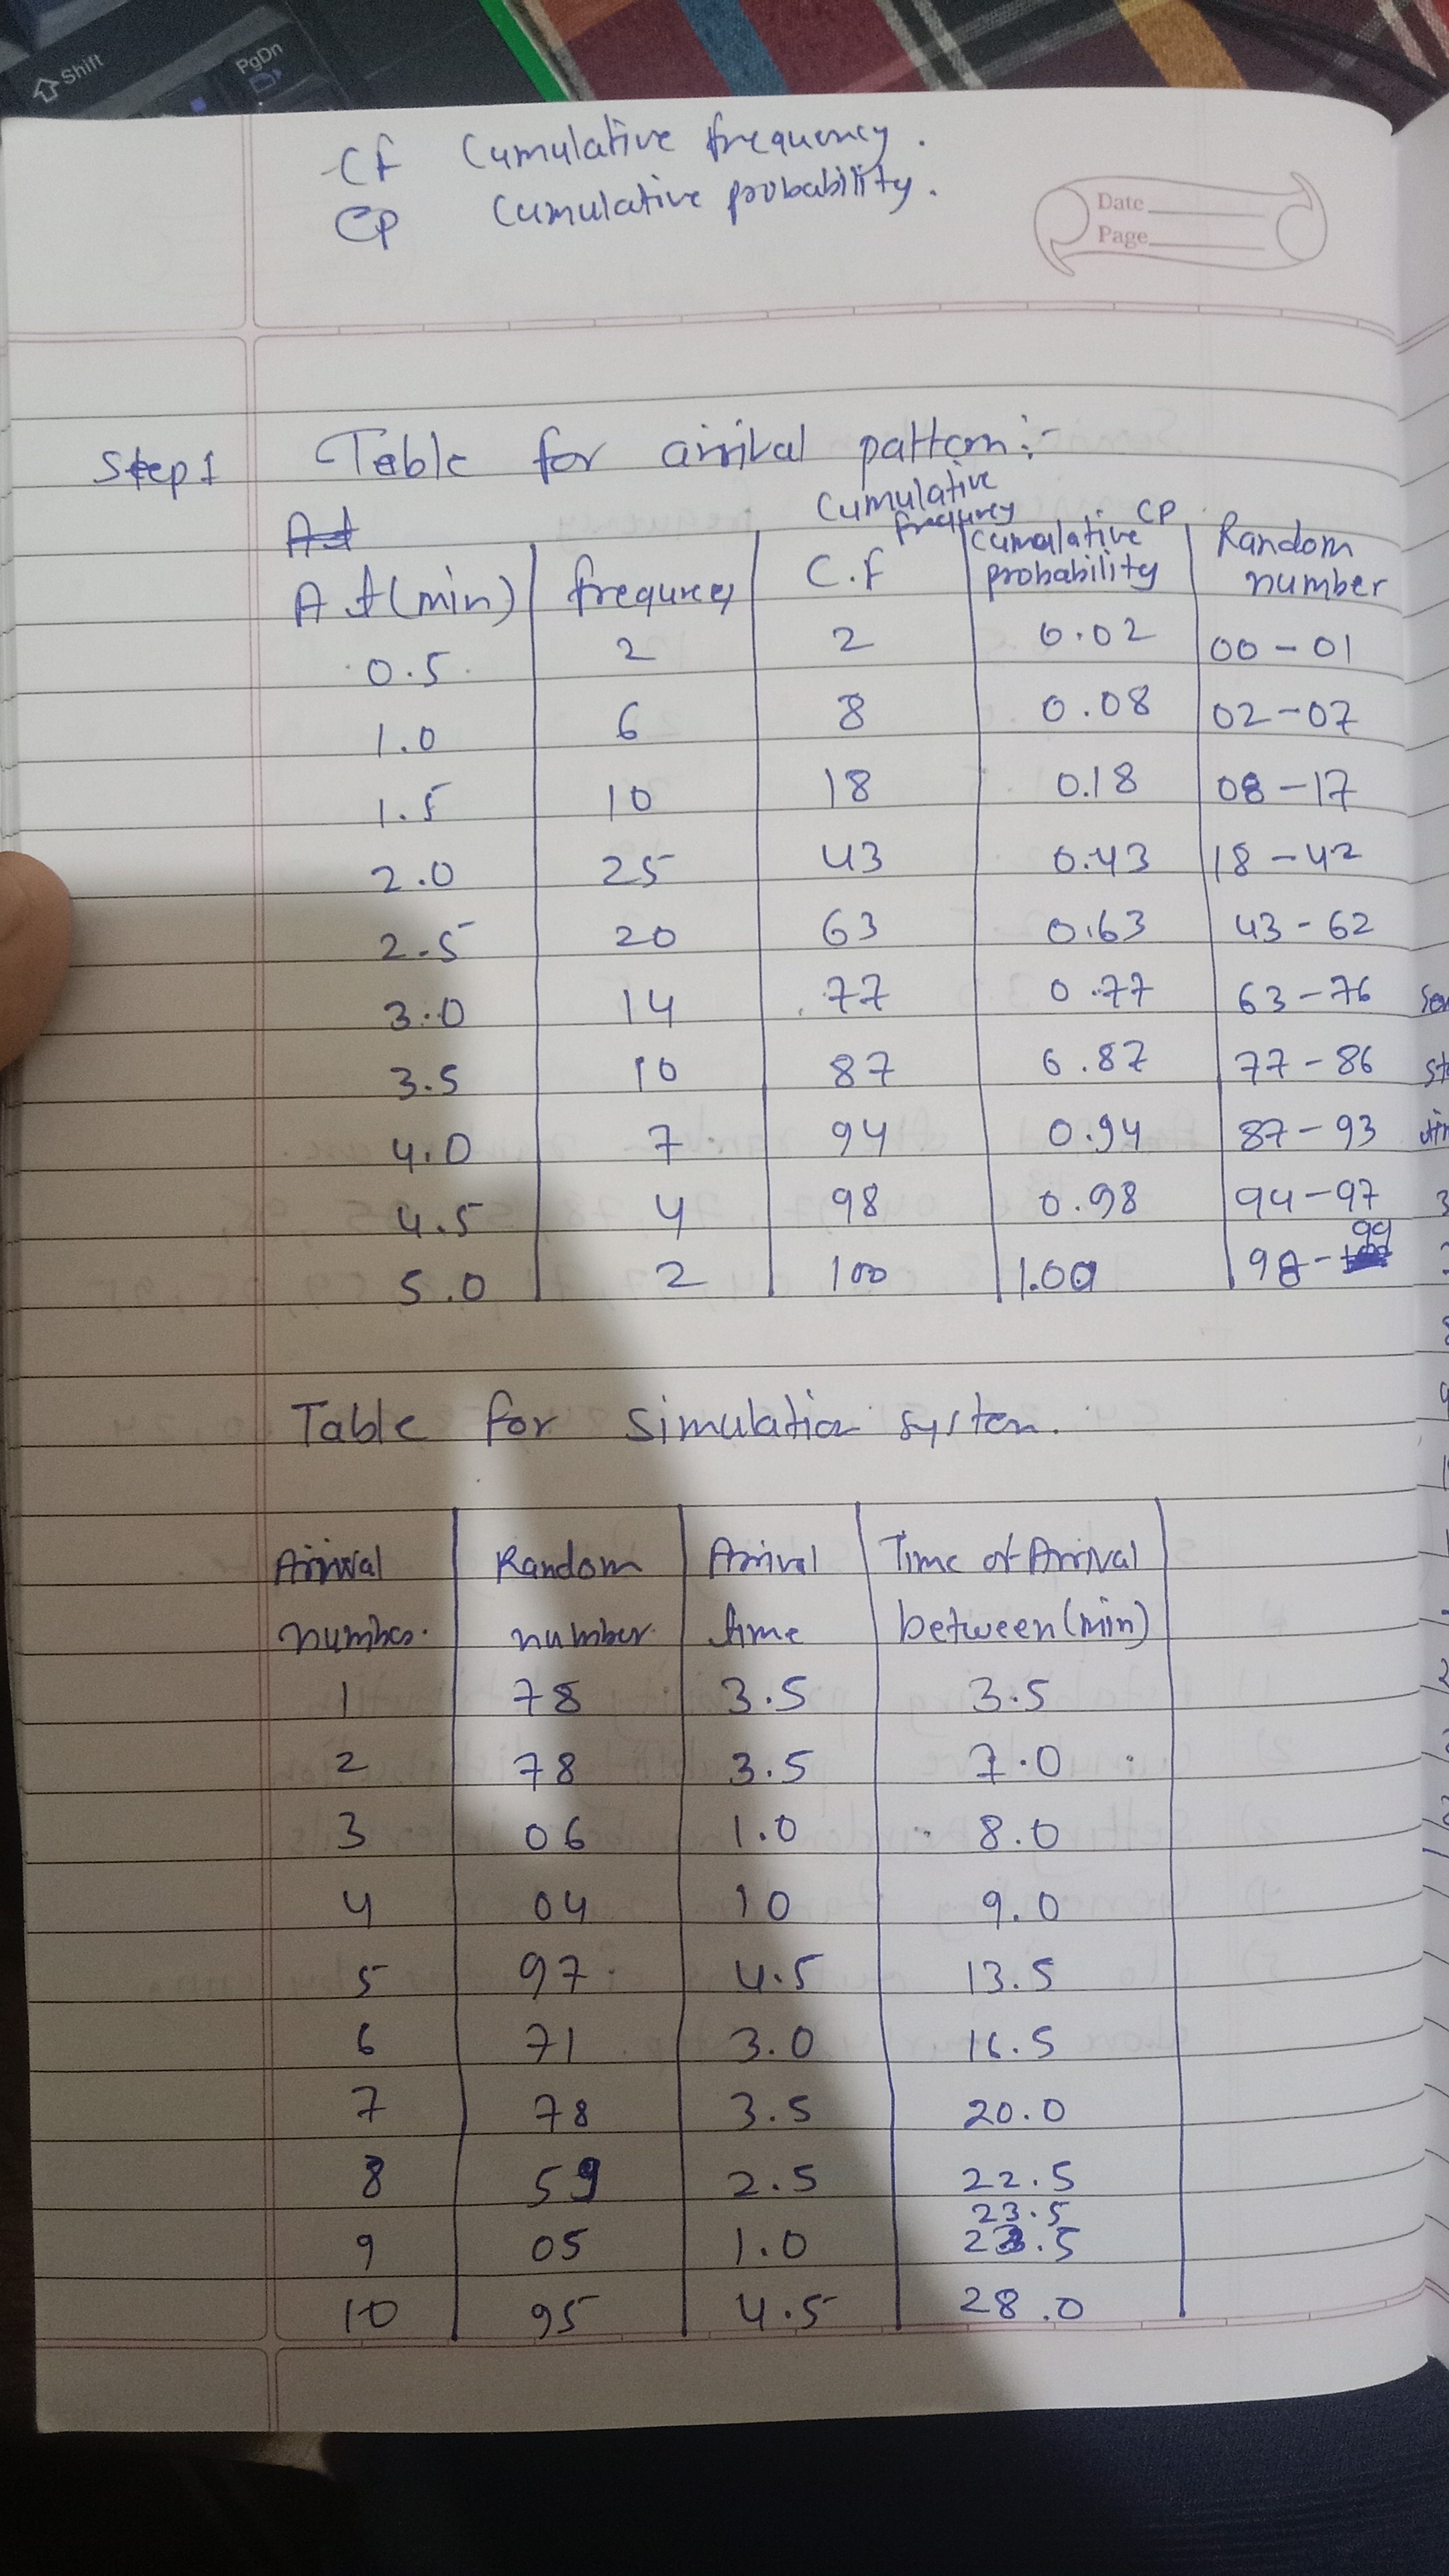 Shift
PgDn
CF Cumulative frequency.
CP Cumulative probability.
Date
Page
Step 1 Table for arrival pattern:-
At
Cumulative frequency
A.t (min) | frequency | C.F | Cumulative probability CP | Random number
0.5 | 2 | 2 | 0.02 | 00 - 01
1.0 | 6 | 8 | 0.08 | 02 - 07
1.5 | 10 | 18 | 0.18 | 08 - 17
2.0 | 25 | 43 | 0.43 | 18 - 42
2.5 | 20 | 63 | 0.63 | 43 - 62
3.0 | 14 | 77 | 0.77 | 63 - 76
3.5 | 10 | 87 | 0.87 | 77 - 86
4.0 | 7 | 94 | 0.94 | 87 - 93
4.5 | 4 | 98 | 0.98 | 94 - 97
5.0 | 2 | 100 | 1.00 | 98 - 99
Table for simulation system.
Arrival number | Random number | Arrival time | Time of Arrival between (min)
1 | 78 | 3.5 | 3.5
2 | 78 | 3.5 | 7.0
3 | 06 | 1.0 | 8.0
4 | 04 | 10 | 9.0
5 | 97 | 4.5 | 13.5
6 | 71 | 3.0 | 16.5
7 | 78 | 3.5 | 20.0
8 | 59 | 2.5 | 22.5
9 | 05 | 1.0 | 23.5 23.5
10 | 95 | 4.5 | 28.0